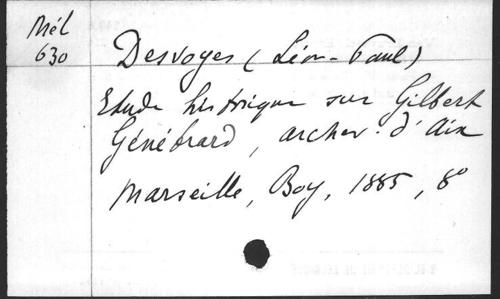 Mél
630
Desvoyes (Léon-Paul)
Etude historique sur Gilbert
Génébrard, archev. d'Aix
Marseille, Boy, 1885, 8°